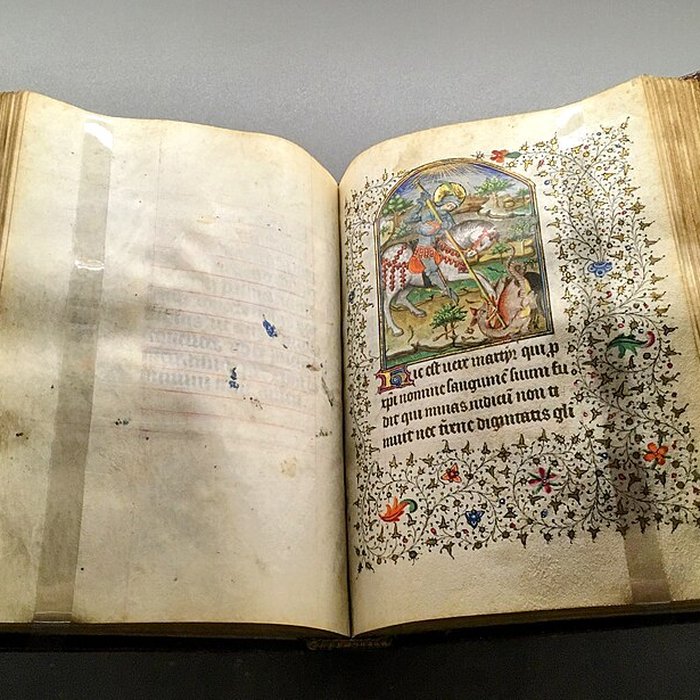 Hic est vere martyr qui p
xpi nomine sanguinē suum fu
dit qui minas iudicū non ti
muit nec terrene dignitatis glī